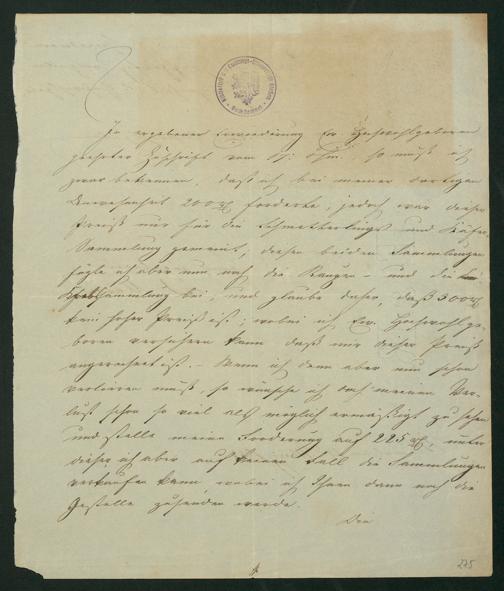 In ergebener Erwiederung Ew. Hochwohlgeboren
geehrter Zuschrift vom 17: dM. so muß ich
zwar bekennen, daß ich bei meiner dortigen
Anwesenheit 200 forderte, jedoch war dieser
Preiß nur für die Schmetterlings und Käfer
Sammlung gemeint, diesen beiden Sammlungen
fügte ich aber nun noch die Raupen- und die
sammlung bei, und glaube daher, daß 300
kein hoher Preiß ist; wobei ich Ew. Hochwohlge
boren versichern kann daß mir dieser Preiß
angerechnet ist. - Wenn ich denn aber nun schon
verlieren muß, so wünsche ich doch meinen Ver-
lust schon so viel als möglich ermäßigt zu sehen
und stelle meine Forderung auf 225, unter
dieser ich aber auf keinen Fall die Sammlungen
verkaufen kann, wobei ich Ihnen dann noch die
Gestelle zusenden werde.
Die
275